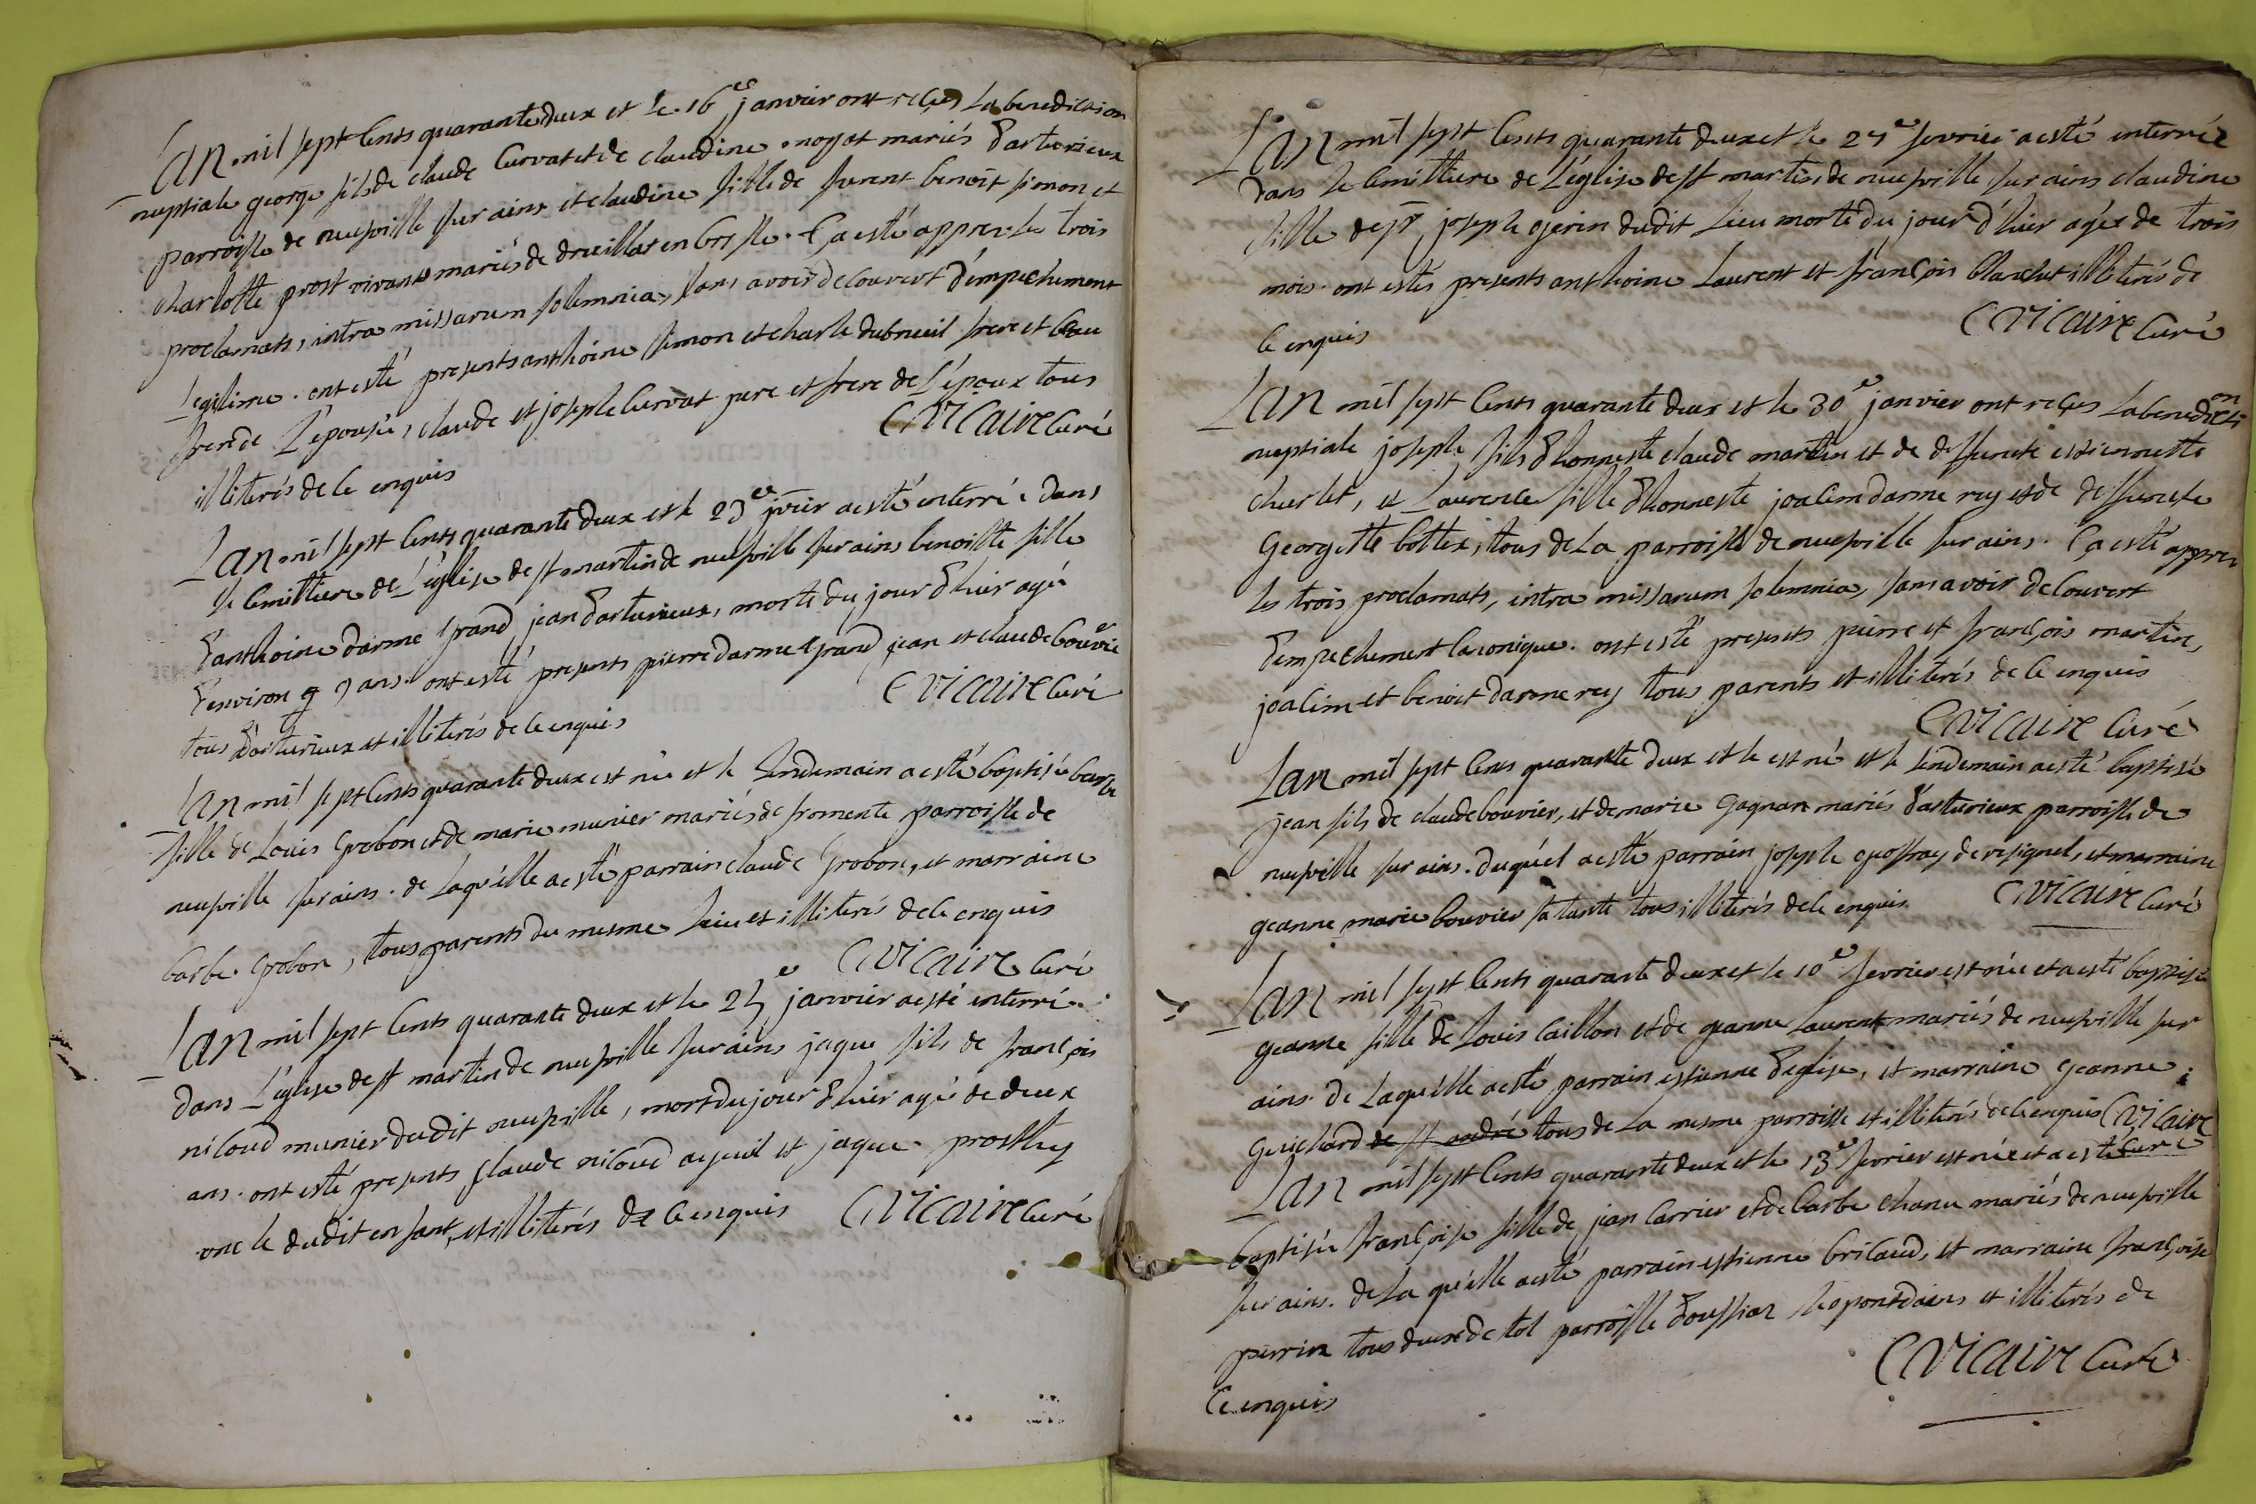 Lan mil sept cents quarante deux et le 16e janvier ont reçus la benediction
nuptiale george fils de claude Curvat et de claudine moyat mariés darturieux
parroisse de neufville sur ains et claudine fille de furent benoit simon et
charlotte prost vivants mariés de druillat en bresse. Ça esté apprez les trois
proclamats, intra missarum solemnia, sans avoir decouvert dempechement
legitime. ont esté presents anthoine simon et charle dubreuil frere et beau
frere de l'epousée, claude et joseph Curvat pere et frere de L'epoux tous
illiterés de ce enquis CVicaire Curé
Lan mil sept cents quarante deux et le 23e jvier a esté enterré dans
le cemittiere de L'église de st martin de neufville sur ains benoitte fille
d'anthoine darme grand jean darturieux, morte du jour d'hier agé
d'environ 9 ans. ont esté presents pierre darme grand jean et claude bouvier
tous d'arturieux et illiterés de ce enquis CVicaire Curé
Lan mil sept cents quarante deux est née et le lendemain a esté baptisée barbe
fille de Louis Grobon et de marie munier mariés de fromente parroisse de
neufville sur ains. de Laquelle a esté parrain claude Grobon, et marraine
barbe Grobon, tous parents du mesme lieu et illiterés de ce enquis
CVicaire Curé
Lan mil sept cents quarante deux et le 25e janvier a esté enterré
dans L'église de st martin de neufville sur ains jaque fils de françois
niCoud munier dudit neufville, mort du jour d'hier agé de deux
ans. ont esté presents Claude niCoud ayeuil et jaque prosthy
oncle dudit enfant, et illiterés de ce enquis CVicaire Curé
Lan mil sept cents quarante deux et le 27e fevrier a esté enterrée
dans le cemittiere de L'église de st martin de neufville sur ains claudine
fille de joseph ojerin dudit lieu morte du jour d'hier agée de trois
mois. ont estés presents anthoine Laurent et françois blanchet illiterés de
ce enquis CVicaire Curé
Lan mil sept cents quarante deux et le 30e janvier ont reçus la benediction
nuptiale joseph fils d'honneste claude martin et de deffuncte estiennette
cherlet, et Laurence fille d'honneste joacim darme rey et de deffuncte
Georgette bottex, tous de La parroisse de neufville sur ains. Ça esté apprez
les trois proclamats, intra missarum solemnia, sans avoir decouvert
dempechement canonique. ont esté presents pierre et françois martin,
joacim et benoit darme rey tous parents et illiterés de ce enquis
CVicaire Curé
Lan mil sept cents quarante deux et le est né et le lendemain a esté baptisé
jean fils de claude bouvier, et de marie Gagnan mariés d'arturieux parroisse de
neufville sur ains. duquel a esté parrain joseph geoffray de resignel, et marraine
geanne marie bouvier sa tante tous illiterés de ce enquis CVicaire Curé
Lan mil sept cents quarante deux et le 10e fevrier est née et a esté baptisée
geanne fille de Louis Caillon et de geanne Laurent mariés de neufville sur
ains. de Laquelle a esté parrain estienne deglise, et marraine geanne
Guichard de st andré tous de La mesme parroisse et illiterés de ce enquis CVicaire
Curé
Lan mil sept cents quarante deux et le 13e fevrier est née et a esté
baptisée françoise fille de jean Carrier et de barbe chanu mariés de neufville
sur ains. de La quelle a esté parrain estienne bricaud, et marraine françoise
perrin tous deux de tol parroisse doussiat le pontdains et illiterés de
ce enquis CVicaire Curé